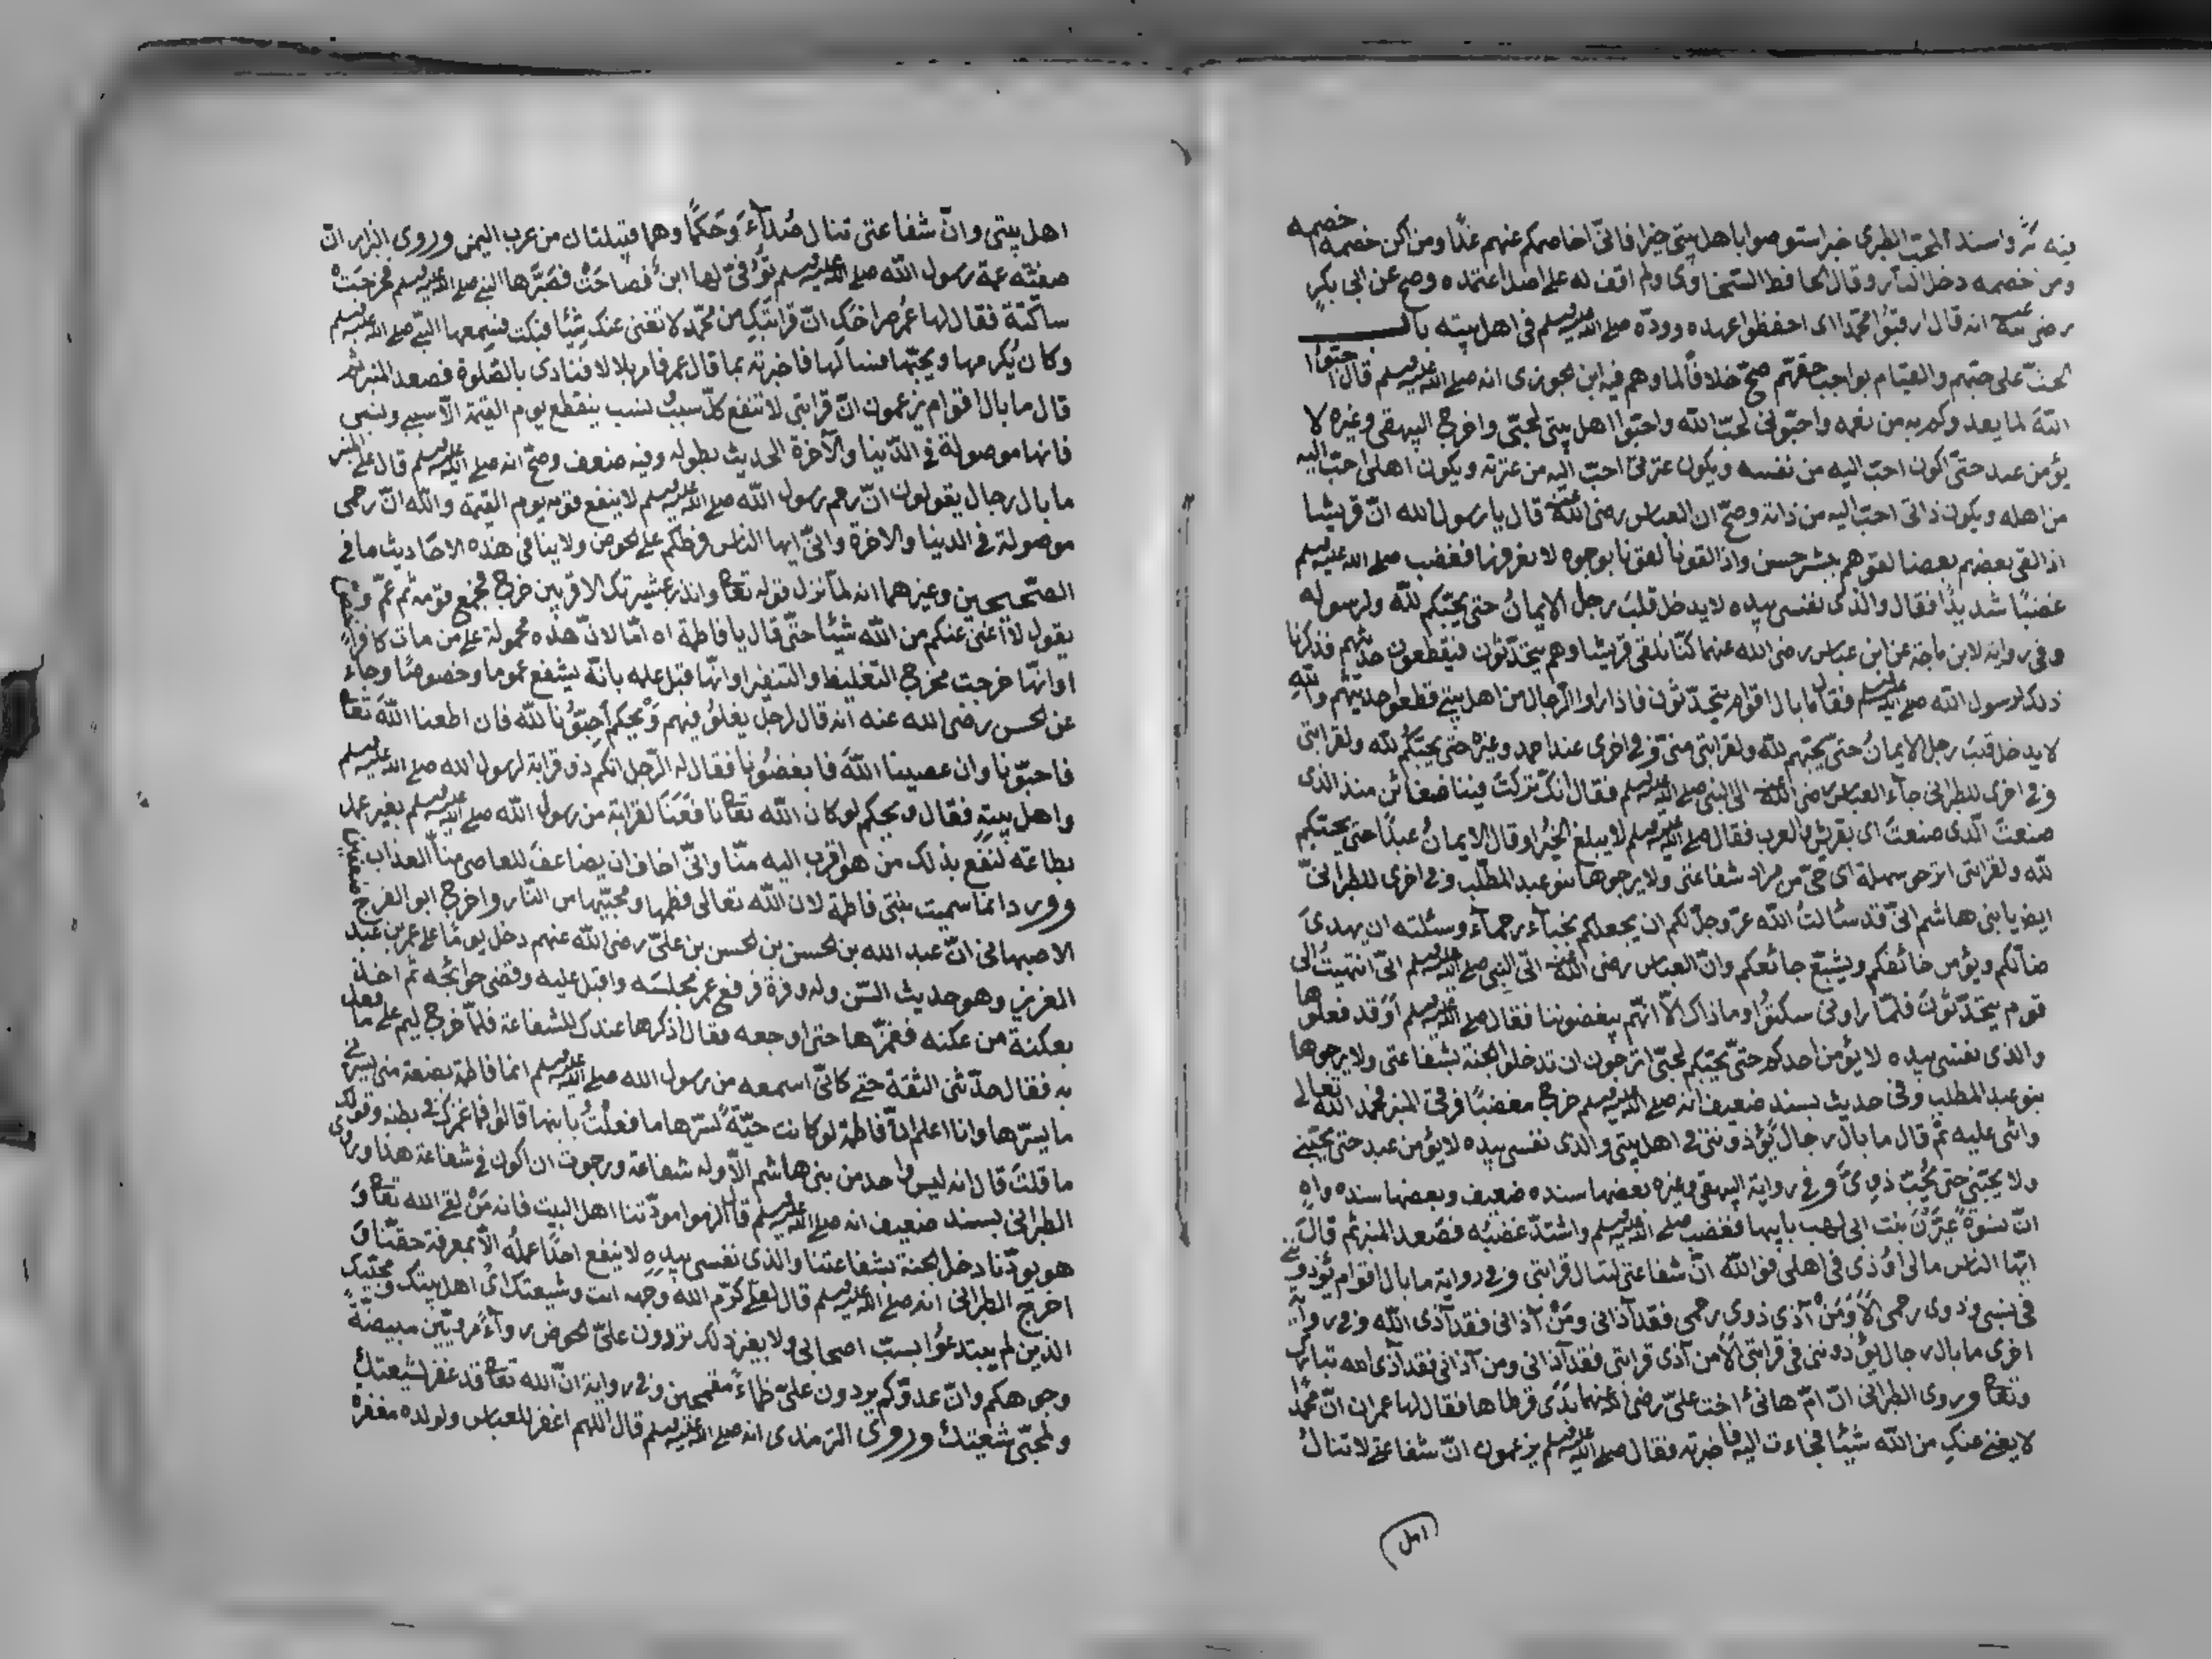 فيه نزل واسند المحب الطبرى خبر استوصوا باهل بيتى خيرا فانى اخاصمكم عنهم غدًا ومن اكن خصمه خصمه
ومن خصمه دخل النار وقال الحافظ السخاوى ولم اقف له على اصل اعتمده وصح عن ابى بكر
رضى الله عنه انه قال ارقبوا محمدا اى احفظوا عهده ووده صلى الله عليه وسلم فى اهل بيته باب
الحث على حبهم والقيام بواجب حقهم صح خلافًا لما وهم فيه ابن الجوزى انه صلى الله عليه وسلم قال احبوا
الله لما يغدوكم به من نعمه واحبونى لحب الله واحبوا اهل بيتى لحبى واخرج البيهقى وغيره لا
يؤمن عبد حتى اكون احب اليه من نفسه ويكون عترتى احب اليه من عترته ويكون اهلى احب اليه
من اهله ويكون ذاتى احب اليه من ذاته وصح ان العباس رضى الله عنه قال يا رسول الله ان قريشا
اذا لقى بعضهم بعضا لقوهم ببشر حسن واذا لقونا لقونا بوجوه لا نعرفها فغضب صلى الله عليه وسلم
غضبًا شديدًا فقال والذى نفسى بيده لا يدخل قلب رجل الايمان حتى يحبكم لله ولرسوله
وفى رواية لابن ماجة عن ابن عباس رضى الله عنهما كنا نلقى قريشا وهم يتحدثون فيقطعون حديثهم فذكرنا
ذلك لرسول الله صلى الله عليه وسلم فقال ما بال اقوام يتحدثون فاذا راوا الرجال من اهل بيتى قطعوا حديثهم والله
لا يدخل قلب رجل الايمان حتى يحبهم لله ولقرابتى منى وفى اخرى عند احمد وغيره حتى يحبكم لله ولقرابتى
وفى اخرى للطبرانى جاء العباس رضى الله عنه الى النبى صلى الله عليه وسلم فقال انك تركت فينا ضغائن منذ الذى
صنعت الذى صنعت اى بقريش والعرب فقال صلى الله عليه وسلم لا يبلغ الخير او قال الايمان عبدًا حتى يحبكم
لله ولقرابتى اترجو سهلة اى حى من مراد شفاعتى ولا يرجوها بنو عبد المطلب وفى اخرى للطبرانى
ايضا يا بنى هاشم انى قد سئالت الله عز وجل لكم ان يجعلكم نجباء رحماء وسئلته ان يهدى
ضالكم ويؤمن خائفكم ويشبع جائعكم وان العباس رضى الله عنه اتى النبى صلى الله عليه وسلم انى انتهيت الى
قوم يتحدثون فلما راونى سكتوا وما ذاك الا انهم يبغضوننا فقال صلى الله عليه وسلم اوقد فعلوها
والذى نفسى بيده لا يؤمن احدكم حتى يحبكم لحبى اترجون ان تدخلوا الجنة بشفاعتى ولا يرجوها
بنو عبد المطلب وفى حديث بسند ضعيف انه صلى الله عليه وسلم خرج مغضبًا فرقى المنبر فحمد الله تعالى
واثنى عليه ثم قال ما بال رجال يؤذوننى فى اهل بيتى والذى نفسى بيده لا يؤمن عبد حتى يحبنى
ولا يحبنى حتى يحب ذوى وفى رواية البيهقى وغيره بعضها سنده ضعيف وبعضها سنده واه
ان نسوة عيرن بنت ابى لهب بابيها فغضب صلى الله عليه وسلم واشتد غضبه فصعد المنبر ثم قال
ايها الناس مالى اوذى فى اهلى فوالله ان شفاعتى لتنال قرابتى وفى رواية ما بال اقوام يؤذوننى
فى نسبى وذوى رحمى الا ومن آذى ذوى رحمى فقد آذانى ومن آذانى فقد آذى الله وفى رواية
اخرى ما بال رجال يؤذوننى فى قرابتى الا من آذى قرابتى فقد آذانى ومن آذانى فقد آذى الله تبارك
وتعالى وروى الطبرانى ان ام هانئ اخت على رضى الله عنهما بدى قرطاها فقال لها عمر ان محمدًا
لا يغنى عنك من الله شيئا فجاءت اليه فاخبرته فقال صلى الله عليه وسلم يزعمون ان شفاعتى لا تنال
اهل
اهل بيتى وان شفاعتى تنال صُداء وحَكمًا وهما قبيلتان من عرب اليمن وروى البزار ان
صفية عمة رسول الله صلى الله عليه وسلم توفى لها ابن فصاحت فصبرها النبى صلى الله عليه وسلم فخرجت
ساكتة فقال لها عمر صراخك ان قرابتك من محمد لا تغنى عنك شيئا فبكت فسمعها النبى صلى الله عليه وسلم
وكان يكرمها ويحبها فسالها فاخبرته بما قال عمر فامر بلالا فنادى بالصلوة فصعد المنبر ثم
قال ما بال اقوام يزعمون ان قرابتى لا تنفع كل سبب ونسب ينقطع يوم القيمة الا سببى ونسبى
فانها موصولة فى الدنيا والآخرة الحديث بطوله وفيه ضعف وصح انه صلى الله عليه وسلم قال على المنبر
ما بال رجال يقولون ان رحم رسول الله صلى الله عليه وسلم لا ينفع قومه يوم القيمة والله ان رحمى
موصولة فى الدنيا والاخرة وانى ايها الناس فرطكم على الحوض ولا ينافى هذه الاحاديث ما فى
الصحيحين وغيرهما انه لما نزل قوله تعالى وانذر عشيرتك الاقربين خرج فجمع قومه ثم عم وخص
بقول لا اغنى عنكم من الله شيئا حتى قال يا فاطمة اه اما لان هذه محمولة على من مات كافرا
او انها خرجت مخرج التغليظ والتنفير او انها قبل علمه بانه يشفع عموما وخصوصًا وجاء
عن الحسن رضى الله عنه انه قال لرجل يغلو فيهم ويحكم احبونا لله فان اطعنا الله تعالى
فاحبونا وان عصينا الله فابغضونا فقال له الرجل انكم ذو قرابة لرسول الله صلى الله عليه وسلم
واهل بيته فقال ويحكم لو كان الله تعالى نافعنا لقرابة من رسول الله صلى الله عليه وسلم بغير عمل
بطاعته لنفع بذلك من هو اقرب اليه منا وانى اخاف ان يضاعف للعاصى منا العذاب ضعفين
وورد انما سميت بنتى فاطمة لان الله تعالى فطمها ومحبيها من النار واخرج ابو الفرج
الاصبهانى ان عبد الله بن الحسن بن الحسن بن على رضى الله عنهم دخل يومًا على عمر بن عبد
العزيز وهو حديث السن وله وفرة فرفع عمر مجلسه واقبل عليه وقضى حوائجه ثم اخذ
بعكنة من عكنه فغمزها حتى اوجعه فقال اذكرها عندك للشفاعة فلما خرج ليم على ما فعل
به فقال حدثنى الثقة حتى كانى اسمعه من رسول الله صلى الله عليه وسلم انما فاطمة بضعة منى يسرنى
ما يسرها وانا اعلم ان فاطمة لو كانت حية لسرها ما فعلت بابنها قالوا فما غمزك فى بطنه وقولك
ما قلت قال انه ليس احد من بنى هاشم الا وله شفاعة ورجوت ان اكون فى شفاعة هذا وروى
الطبرانى بسند ضعيف انه صلى الله عليه وسلم قال الزموا مودتنا اهل البيت فانه من لقى الله تعالى و
هو يودنا دخل الجنة بشفاعتنا والذى نفسى بيده لا ينفع احدًا عمله الا بمعرفة حقنا و
اخرج الطبرانى انه صلى الله عليه وسلم قال لعلى كرم الله وجهه انت وشيعتك اى اهل بيتك ومحبيك
الذين لم يبتدعوا بسب اصحابى ولا بغير ذلك تردون على الحوض رواءً مرويين مبيضة
وجوهكم وان عدوكم يردون على ظماءً مقمحين وفى رواية ان الله تعالى قد غفر لشيعتك
ولمحبى شيعتك وروى الترمذى انه صلى الله عليه وسلم قال اللهم اغفر للعباس ولولده مغفرة